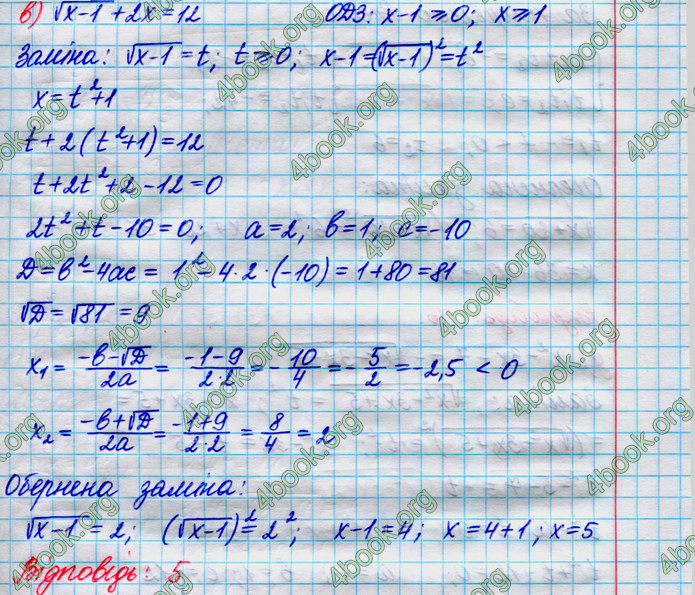 в) √x-1 + 2x = 12 ОДЗ: x-1 ⩾ 0; x ⩾ 1
Заміна: √x-1 = t; t ⩾ 0; x-1 = (√x-1)² = t²
x = t²+1
t + 2(t²+1) = 12
t + 2t² + 2 - 12 = 0
2t² + t - 10 = 0; a = 2; в = 1; c = -10
Д = в² - 4ac = 1² - 4·2·(-10) = 1 + 80 = 81
√Д = √81 = 9
x₁ = (-в-√Д)/2a = (-1-9)/2·2 = -10/4 = -5/2 = -2,5 < 0
x₂ = (-в+√Д)/2a = (-1+9)/2·2 = 8/4 = 2
Обернена заміна:
√x-1 = 2; (√x-1)² = 2²; x-1 = 4; x = 4+1; x = 5
Відповідь: 5
4book.org